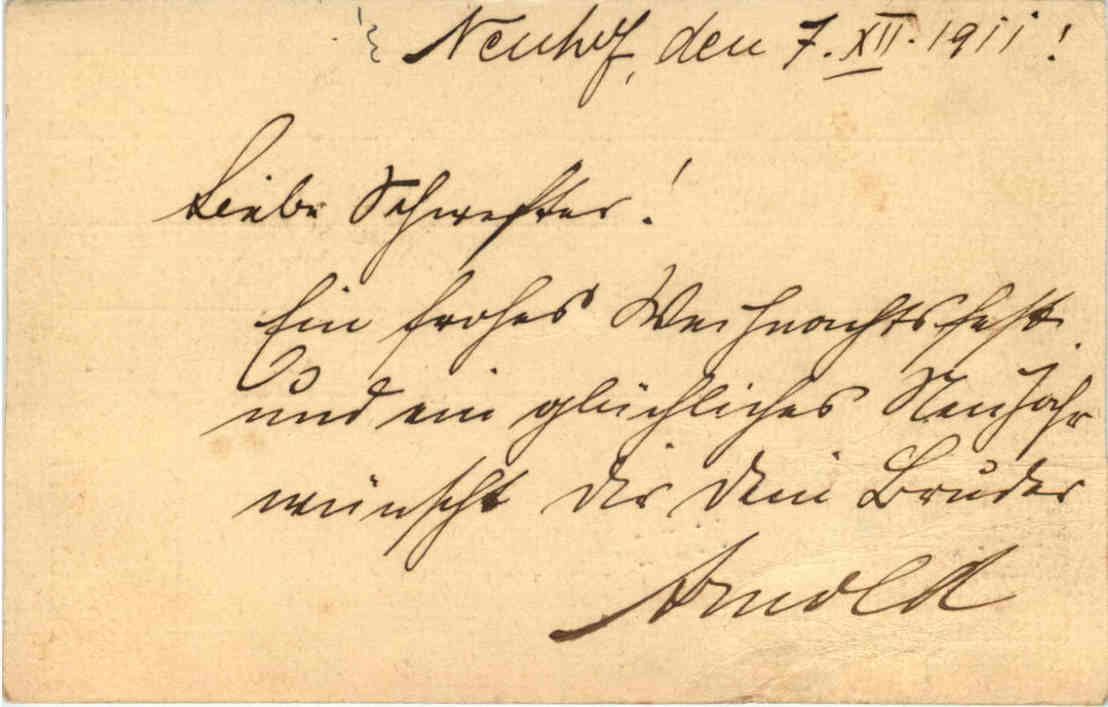 Neuhof, den 7. XII. 1911!
Liebe Schwester!
Ein frohes Weihnachtsfest
und ein glückliches Neujahr
wünscht dir dein Bruder
Arnold